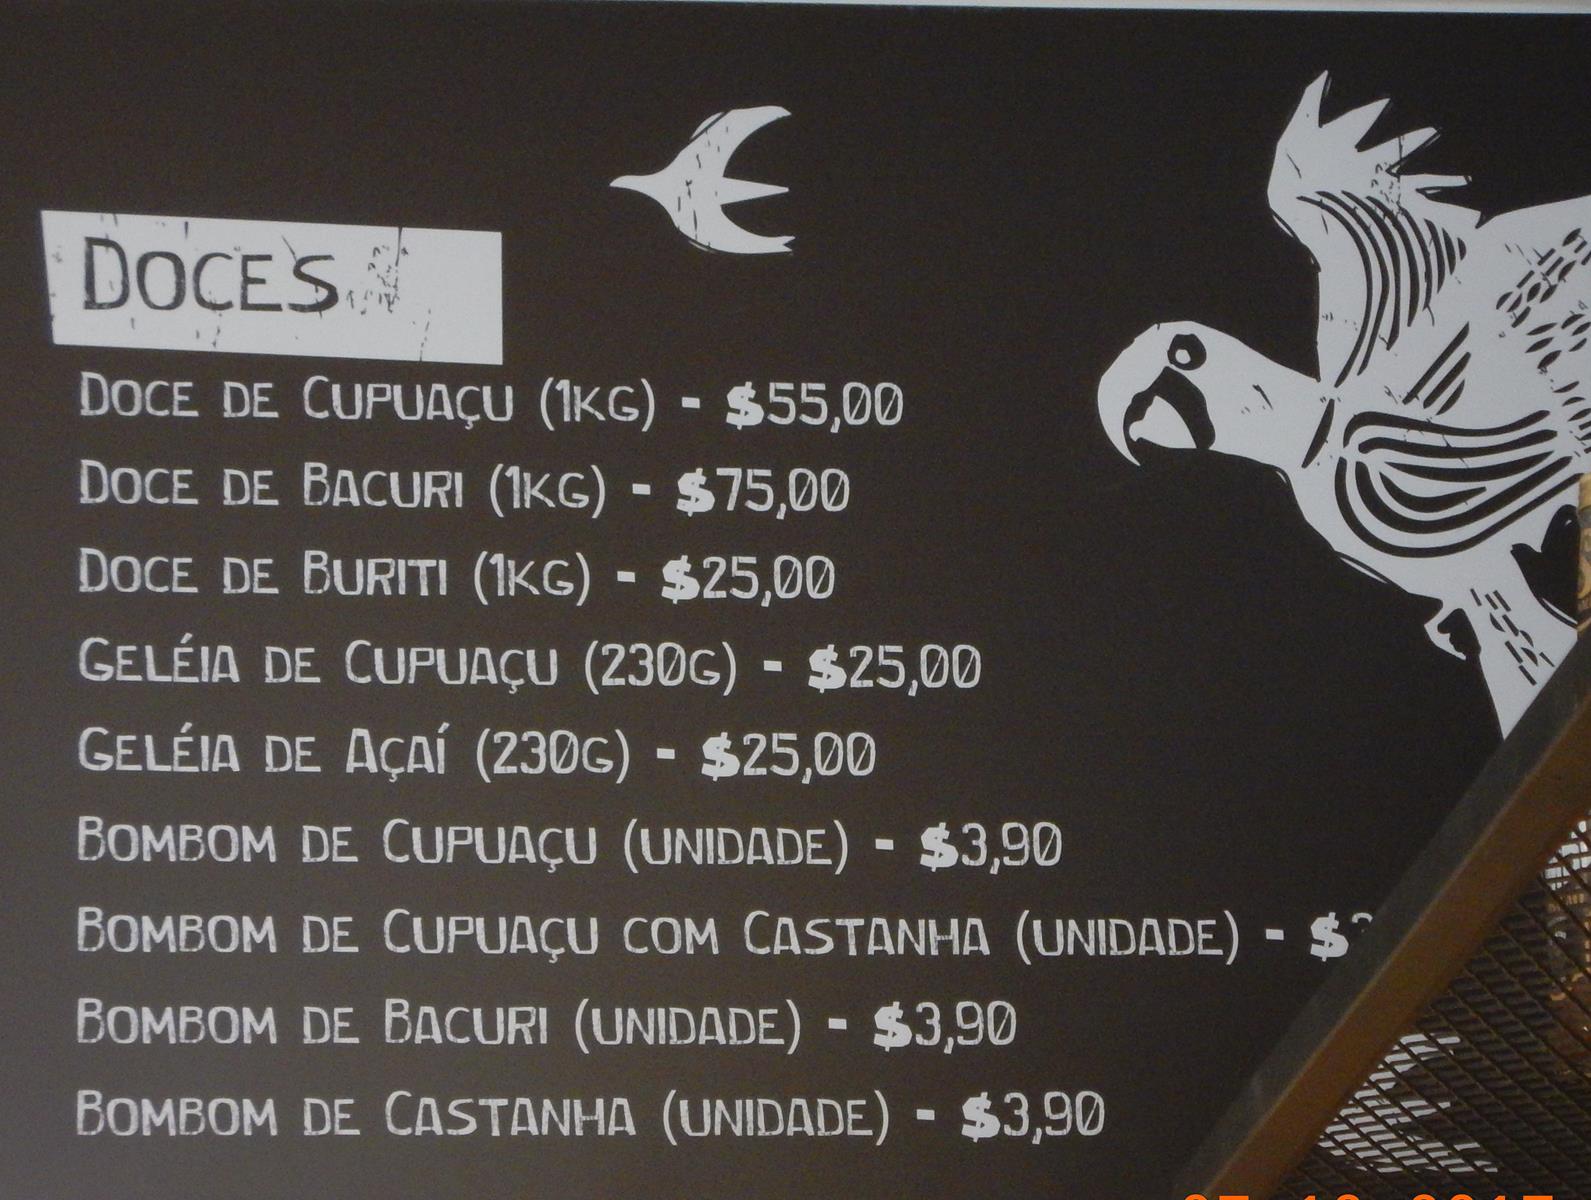 DOCES
DOCE DE CUPUAÇU (1KG) - $55,00
DOCE DE BACURI (1KG) - $75,00
DOCE DE BURITI (1KG) - $25,00
GELÉIA DE CUPUAÇU (230G) - $25,00
GELÉIA DE AÇAÍ (230G) - $25,00
BOMBOM DE CUPUAÇU (UNIDADE) - $3,90
BOMBOM DE CUPUAÇU COM CASTANHA (UNIDADE) - $
BOMBOM DE BACURI (UNIDADE) - $3,90
BOMBOM DE CASTANHA (UNIDADE) - $3,90